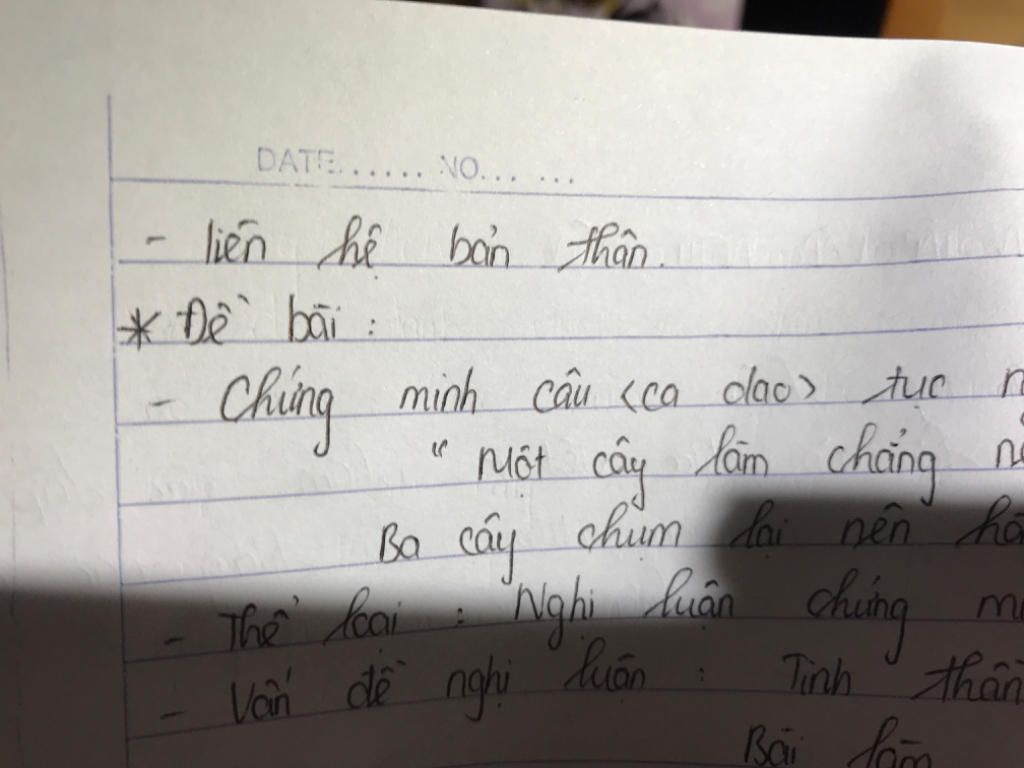 DATE...... NO... ...
- liên hệ bản thân.
* Đề bài :
- Chứng minh câu <ca dao> tục
" Một cây làm chẳng
Ba cây chụm lại nên
- Thể loại : Nghị luận chứng
- Vấn đề nghị luận : Tinh thần
Bài làm